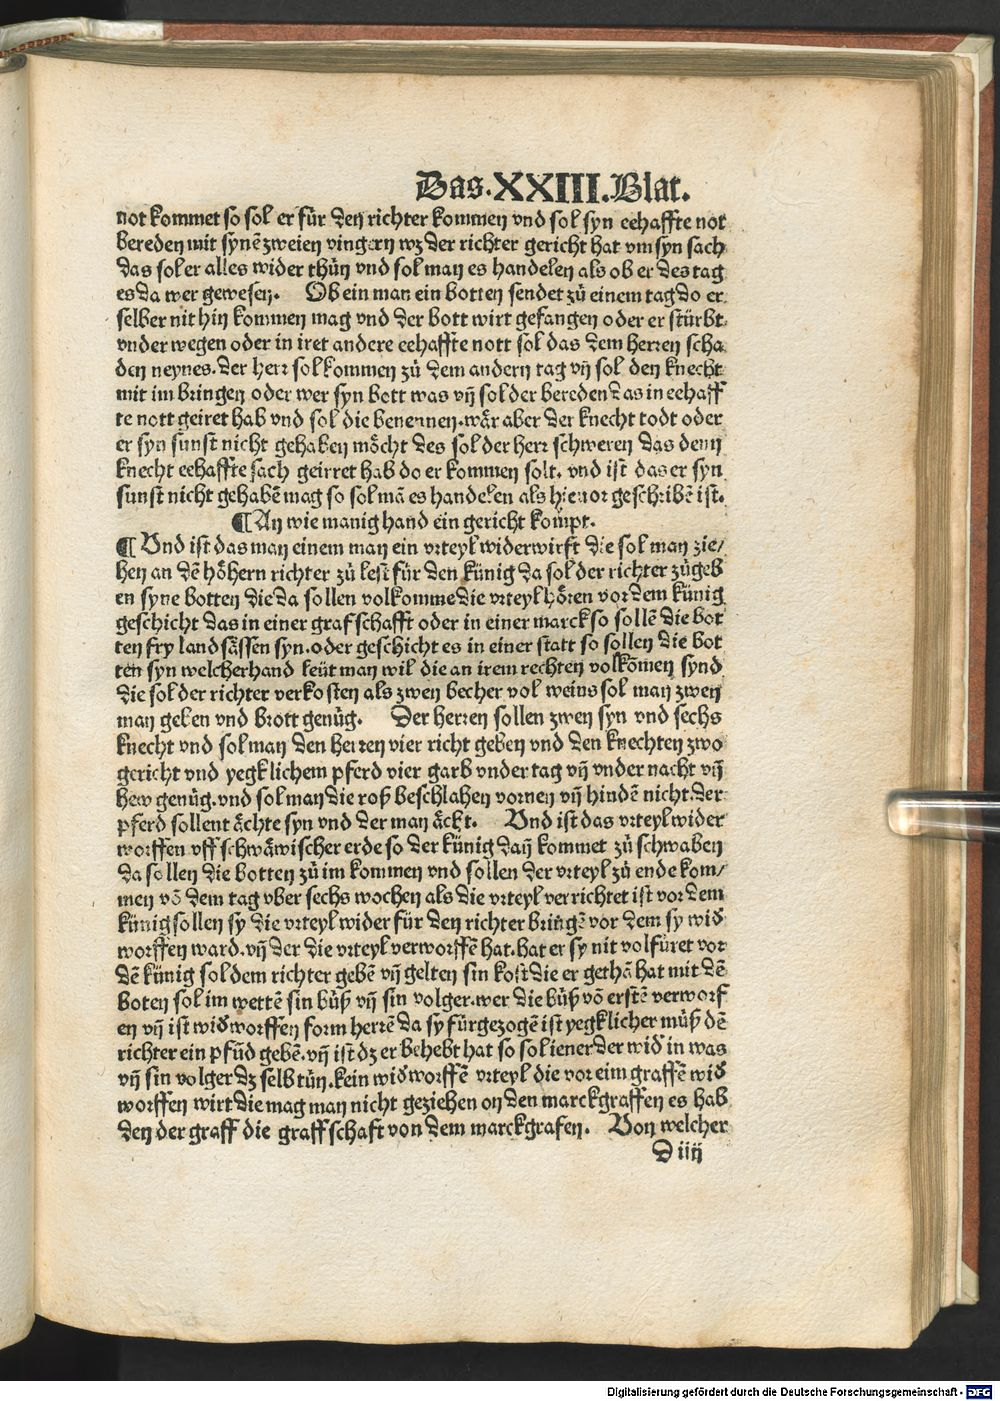 Das.XXIII.Blat.
not kommet so sol er für den richter kommen vnd sol syn eehaffte not
bereden mit synē zweien vingern wz der richter gericht hat vm syn sach
das sol er alles wider thůn vnd sol man es handelen als ob er des tag
es da wer gewesen. Ob ein man ein botten sendet zů einem tag do er
selber nit hin kommen mag vnd der bott wirt gefangen oder er stürbt
vnder wegen oder in irret andere eehaffte nott sol das dem herren scha
den neynes. der herr sol kommen zů dem andern tag vñ sol den knecht
mit im bringen oder wer syn bott was vñ sol der bereden das in eehaff
te nott geiret hab vnd sol die benennen. wär aber der knecht todt oder
er syn sunst nicht gehaben möcht des sol der herr schweren das dem
knecht eehaffte sach geirret hab do er kommen solt. vnd ist das er syn
sunst nicht gehabē mag so sol mā es handelen als hieuor geschribē ist.
¶ An wie manig hand ein gericht kompt.
¶ Vnd ist das man einem man ein vrteyl widerwirft die sol man zie/
hen an dē höhern richter zů lest für den künig da sol der richter zůgeb
en syne botten die da sollen volkomme die vrteyl hören vor dem künig
geschicht das in einer grafschafft oder in einer marck so sollē die bot
ten fry landsässen syn. oder geschicht es in einer statt so sollen die bot
ten syn welcherhand leüt man wil die an irem rechten volkōmen synd
die sol der richter verkosten als zwen becher vol weins sol man zwen
man geben vnd brott genůg. Der herren sollen zwen syn vnd sechs
knecht vnd sol man den herren vier richt geben vnd den knechten zwo
gericht vnd yegklichem pferd vier garb vnder tag vñ vnder nacht vñ
hew genůg. vnd sol man die roß beschlahen vornen vñ hindē nicht. der
pferd sollent ächte syn vnd der man ächt. Vnd ist das vrteyl wider
worffen vff schwäwischer erde so der künig dañ kommet zů schwaben
da sollen die botten zů im kommen vnd sollen der vrteyl zů ende kom/
men vō dem tag vber sechs wochen als die vrteyl verrichtet ist vor dem
künig sollen sy die vrteyl wider für den richter bringē vor dem sy wid
worffen ward. vñ der die vrteyl verworffē hat. hat er sy nit volfüret vor
dē künig sol dem richter gebē vñ gelten sin kost die er gethā hat mit dē
boten sol im wettē sin bůß vñ sin volger. wer die bůß vō erstē verworf
en vñ ist widworffen form herrē da sy fürgezogē ist yegklicher můß dē
richter ein pfūd gebē. vñ ist dz er behebt hat so sol iener der wid in was
vñ sin volger dz selb tůn. kein widworffē vrteyl die vor eim graffē wid
worffen wirt die mag man nicht geziehen on den marckgraffen es hab
den der graff die graffschaft von dem marckgrafen. Von welcher
D iiij
Digitalisierung gefördert durch die Deutsche Forschungsgemeinschaft - DFG